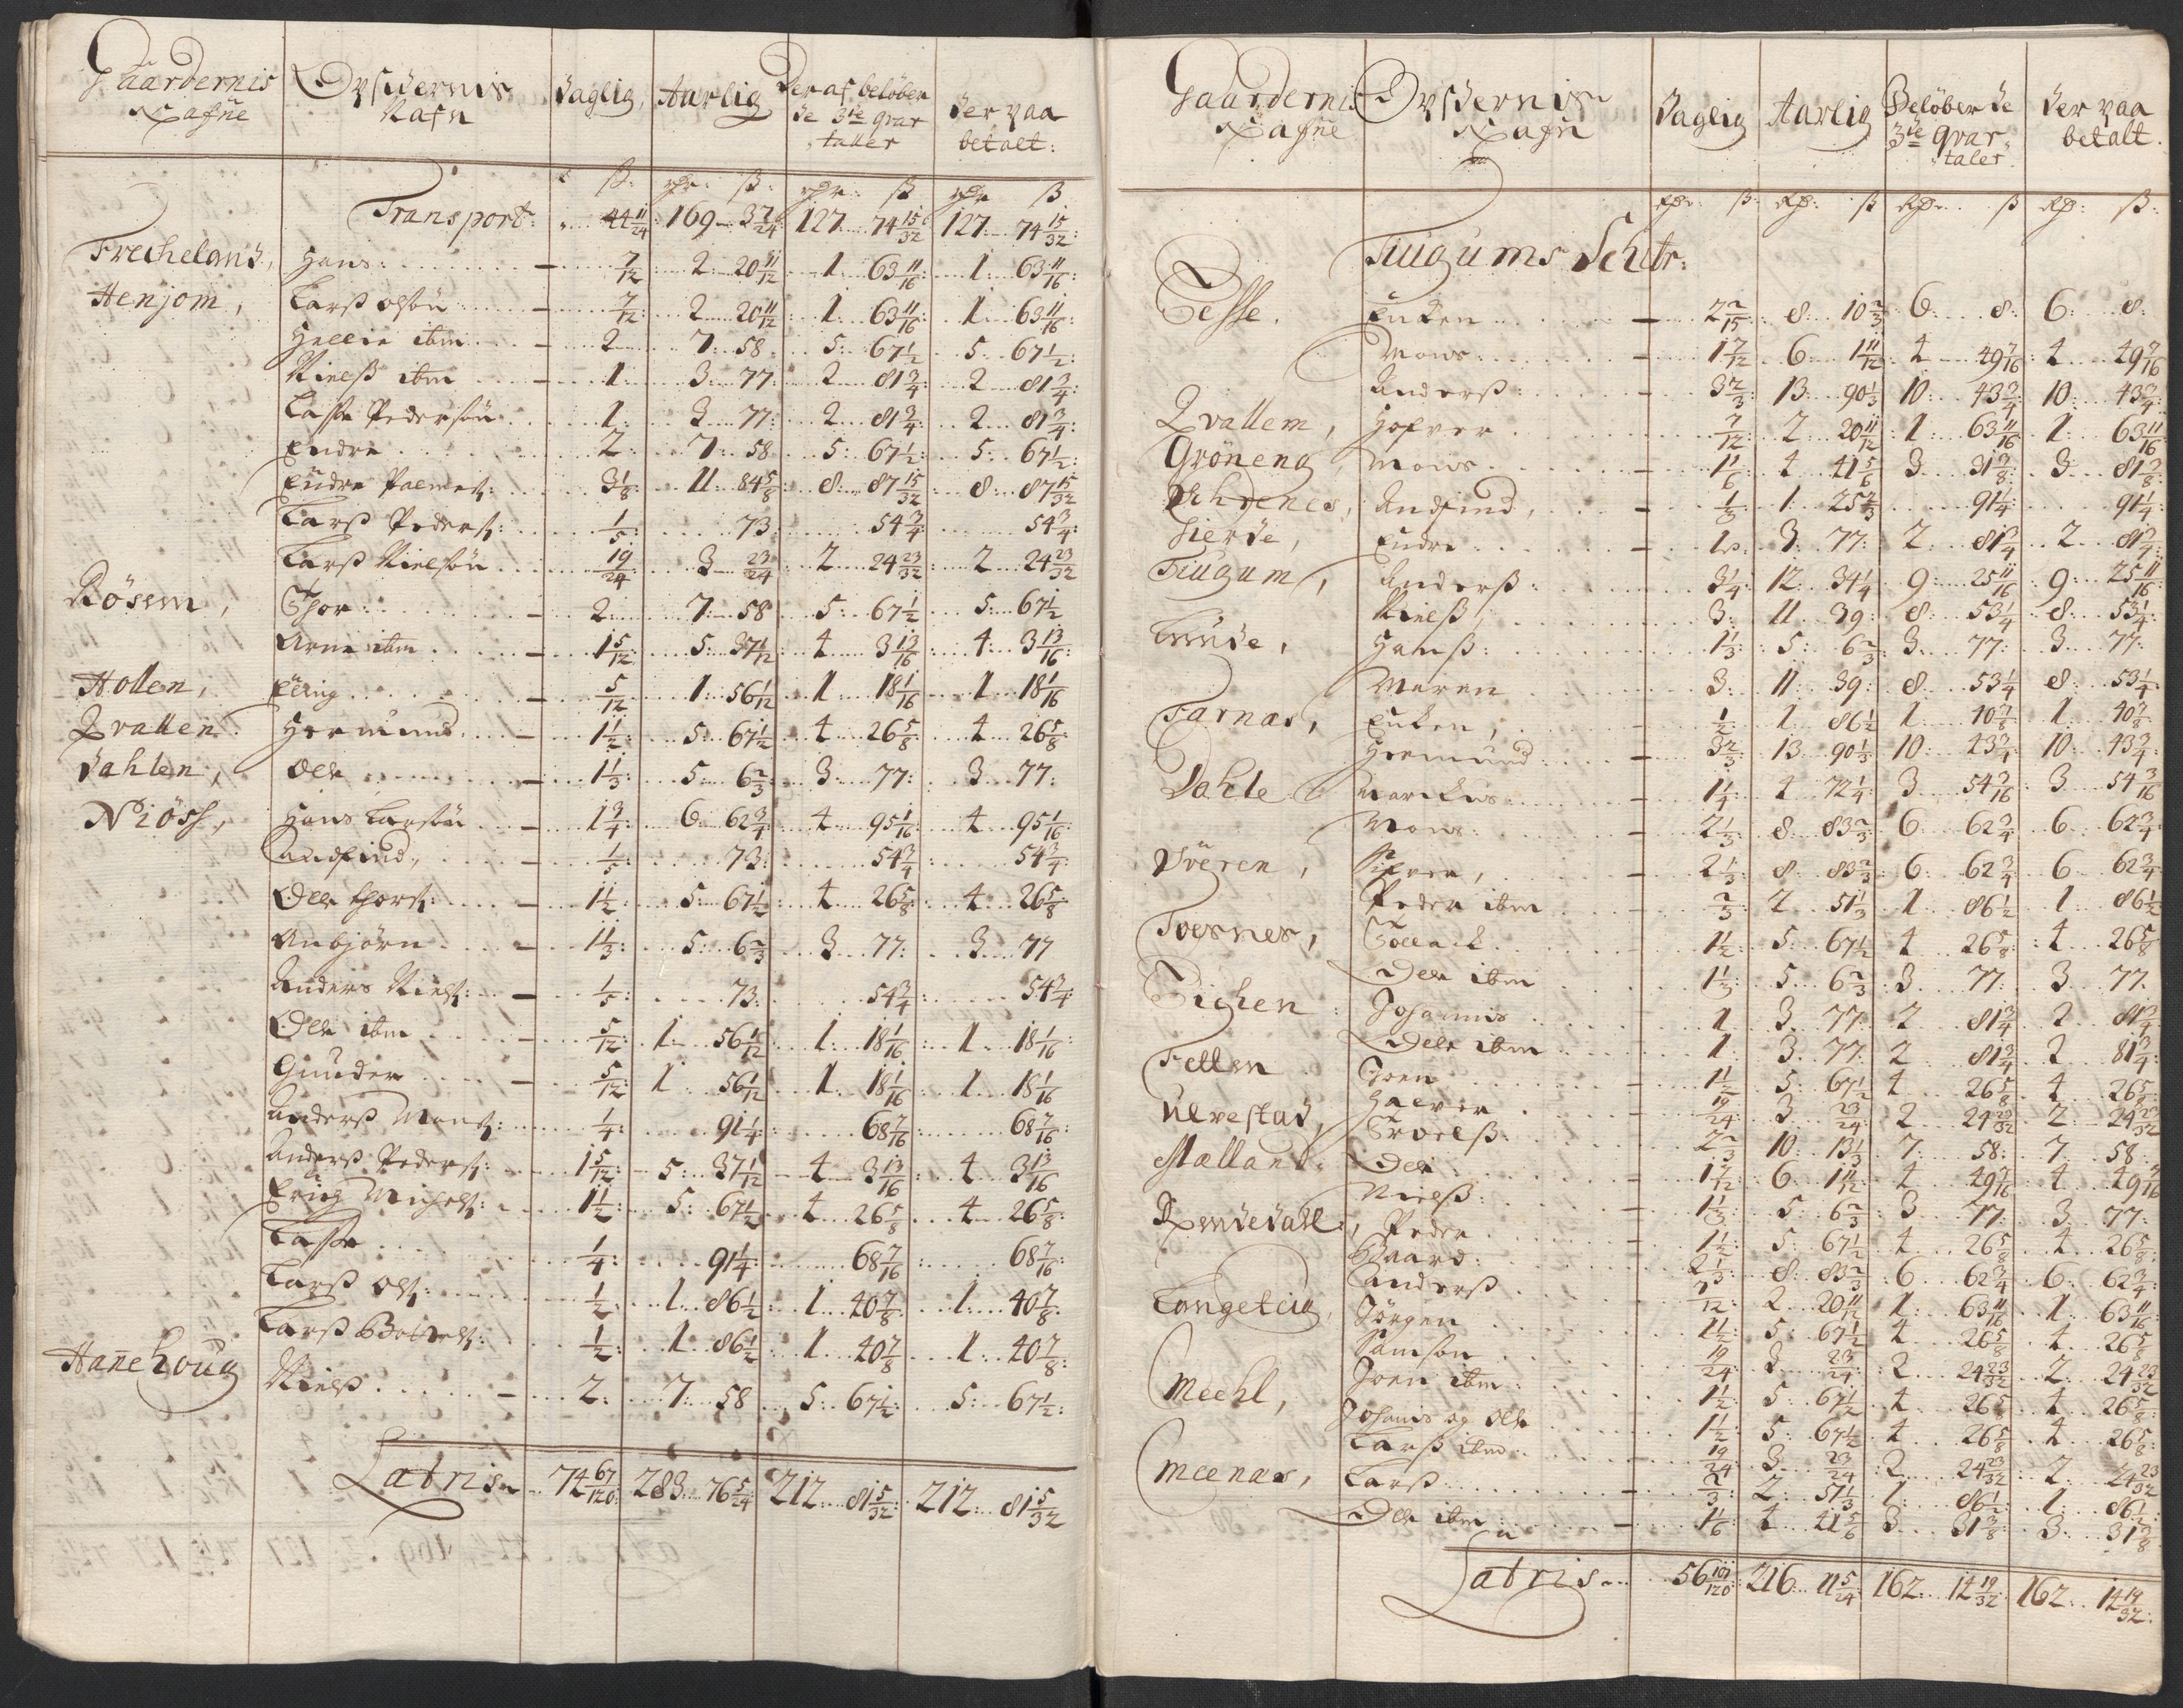 Gaardernis Nafne | Opsidernis Nafn | Daglig | Aarlig | Der af beløber de 3de qvartaller | Der paa betalt:
ß: | rdr: ß: | rdr: ß | rdr ß
Transport: 44 11/24: 169 – 3 7/24: 127 74 15/32: 127 74 15/32:
Frecheland, Hans: – 7/12: 2: 20 11/12: 1: 63 11/16: 1: 63 11/16:
Henjom, Larß olsøn – 7/12: 2 20 11/12: 1: 63 11/16: 1: 63 11/16:
Hellie ibm – 2 7: 58 5: 67 1/2: 5: 67 1/2:
Nielß ibm – 1: 3: 77: 2 81 3/4: 2 81 3/4:
Lasse Pedersøn 1: 3 77: 2 81 3/4: 2 81 3/4:
Endre 2: 7: 58 5: 67 1/2: 5: 67 1/2:
Endre Palmes: 3 1/8: 11: 84 5/8: 8: 87 15/32: 8: 87 15/32
Larß Peders: 1/5: 73: 54 3/4: 54 3/4:
Larß Nielsøn 19/24: 3 23/24: 2 24 23/32: 2 24 23/32
Røsem, Thor: – 2: 7: 58 5: 67 1/2 5: 67 1/2
Arne ibm – 1 5/12: 5: 37 1/12: 4 3 13/16: 4: 3 13/16:
Hollen, Elling – 5/12: 1: 56 1/12 1: 18 1/16: 1 18 1/16:
Qvallen: Hermund – 1 1/2: 5: 67 1/2 4 26 5/8: 4 26 5/8:
Dahlen, Ole – 1 1/3: 5: 6 2/3: 3: 77: 3 77:
Niøss, Hans Larsøn – 1 3/4: 6 62 3/4: 4 95 1/16: 4 95 1/16:
Andfind, – 1/5: 73: 54 3/4: 54 3/4:
Ole Thors: – 1 1/2: 5: 67 1/2 4 26 5/8: 4 26 5/8:
Anbjørn – 1 1/3: 5: 6 2/3 3 77: 3 77
Anders Niels: – 1/5: 73: 54 3/4: 54 3/4:
Ole ibm – 5/12: 1: 56 1/12 1: 18 1/16: 1 18 1/16:
Gunder – 5/12: 1 56 1/12 1 18 1/16 1 18 1/16
Anderß Mons: 1/4: 91 1/4: 68 7/16: 68 7/16:
Anderß Peders: 1 5/12: 5: 37 1/12 4 3 13/16: 4 3 13/16
Erig Michels: 1 1/2: 5: 67 1/2 4 26 5/8: 4 26 5/8:
Lasse 1/4: 91 1/4: 68 7/16: 68 7/16:
Larß Ols: 1/2: 1: 86 1/2: 1 40 7/8: 1 40 7/8:
Larß 1/2: 1 86 1/2 1 40 7/8: 1: 40 7/8:
Hanehoug Nielß – 2: 7: 58 5: 67 1/2: 5: 67 1/2:
Latris 74 67/120: 283 76 5/24 212: 81 5/32: 212: 81 5/32
Gaardernis Nafne | Opsidernis Nafn | Daglig | Aarlig | Beløber de 3de qvartaler | Der paa betalt.
rdr: ß: | rdr: ß | rdr ß | rdr: ß:
Tiugums Schibr:
Enken – 2 2/15: 8 10 2/3: 6: 8: 6: 8:
Mons: – 1 7/12: 6: 1 11/12: 4 49 7/16: 4 49 7/16
Anderß: – 3 2/3: 13: 90 1/3: 10: 43 3/4: 10: 43 3/4:
Qvallem, 7/12: 2 20 11/12: 1: 63 11/16: 1: 63 11/16
Grøneng Mons – 1 1/6: 4 41 5/6 3: 31 3/8: 3: 81 3/8:
Andfind, – 1/3: 1: 25 2/3 91 1/4: 91 1/4:
Hierde, Endre – 1: 3: 77: 2: 81 3/4: 2: 81 3/4:
Tiugum, Anderß: 3 1/4: 12: 34 1/4 9: 25 11/16 9: 25 11/16:
Nielß, 3: 11 39: 8: 53 1/4 8: 53 1/4:
Linde, Hanß: 1 1/3: 5: 6 2/3: 3: 77: 3: 77:
Maren 3: 11 39: 8 53 1/4 8: 53 1/4
Farnas, Enken, – 1/2: 1 86 1/2 1: 40 7/8: 1: 40 7/8
Hermund – 3 2/3: 13: 90 1/3 10: 43 3/4: 10: 43 3/4:
Dahle Markus – 1 1/4: 4 72 1/4: 3 54 3/16: 3 54 3/16
Mons: – 2 1/3: 8: 83 2/3: 6: 62 3/4: 6: 62 3/4:
Sveren, – 2 1/3: 8: 83 2/3: 6 62 3/4: 6 62 3/4:
Peder ibm – 2/3: 2 51 1/3 1 86 1/2: 1 86 1/2
Toesnes, Tollack 1 1/2: 5: 67 1/2 4 26 5/8: 4 26 5/8
Ole ibm 1 1/3: 5: 6 2/3: 3 77: 3 77:
Eichen: Johannis 1 3: 77: 2 81 3/4: 2 81 3/4:
Ole ibm 1: 3: 77: 2 81 3/4: 2 81 3/4:
Fetten Joen – 1 1/2: 5: 67 1/2 4 26 5/8: 4 26 5/8:
Halvor 19/24: 3 23/24: 2 24 23/32 2: 24 23/32
Ulvestad, Troelß: 2 2/3 10: 13 1/3 7: 58: 7: 58
Mælland: Ole 1 7/12: 6: 1 11/12: 4 49 7/16 4 49 7/16
Nielß: – 1 1/3: 5: 6 2/3: 3 77: 3: 77:
Romdedall, Peder – 1 1/2: 5: 67 1/2 4 26 5/8: 4 26 5/8:
Baard: 2 1/3: 8: 83 2/3: 6 62 3/4: 6: 62 3/4:
Anderß 7/12: 2: 20 11/12: 1: 63 11/16: 1: 63 11/16:
Langeteig, Jørgen 1 1/2: 5: 67 1/2 4 26 5/8: 4 26 5/8:
Samson 19/24: 3 23/24: 2 24 23/32: 2: 24 23/32
Meehl, Joen ibm: 1 1/2: 5: 67 1/2 4 26 5/8: 4 26 5/8:
Johanis og Ole 1 1/2: 5: 67 1/2 4 26 5/8: 4 26 5/8:
Larß ibm 19/24: 3 23/24: 2 24 23/32: 2 24 23/32
Meenas, Larß – 2/3: 2: 51 1/3 1: 86 1/2: 1: 86 1/2:
Ole ibm – 1 1/6: 4 41 5/6 3 31 3/8: 3: 31 3/8:
Latris 56 101/120: 216 11 5/24: 162 14 19/32: 162: 14 19/32: